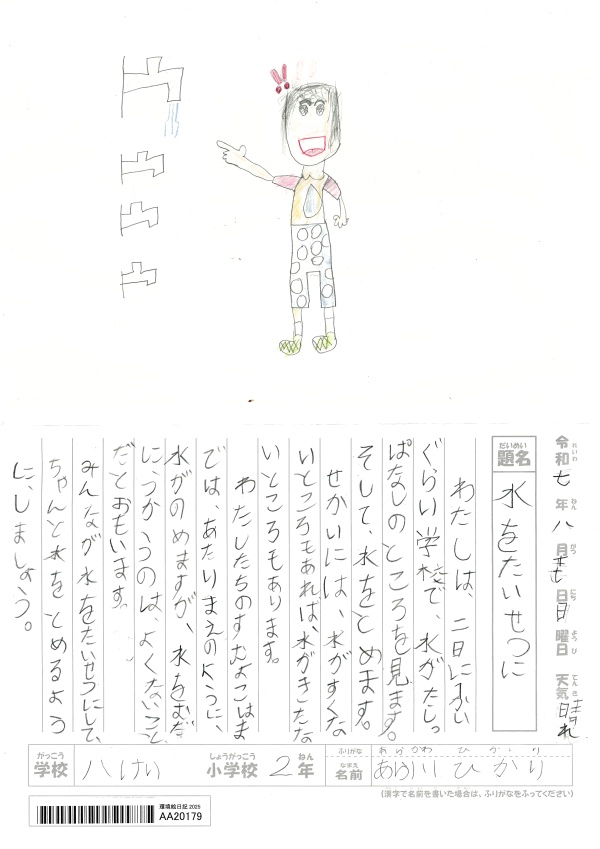 令和七年八月日日曜日 天気晴れ
れいわ ねん がつ にち ようび てんき
だいめい
題名 水をたいせつに
わたしは、二日に一かい
ぐらい学校で、水がたしっ
ぱなしのところを見ます。
そして、水をとめます。
せかいには、水がすくな
いところもあれば、水がきたな
いところもあります。
わたしたちのすむよこはま
では、あたりまえのように、
水がのめますが、水をむだ
につかうのは、よくないこと
だとおもいます。
みんなが水をたいせつにして、
ちゃんと水をとめるよう
に、しましょう。
がっこう しょうがっこう ねん ふりがな かわ ひかり
学校 八けい 小学校 2年 なまえ 名前 川 ひかり
(漢字で名前を書いた場合は、ふりがなをふってください)
環境絵日記 2025
AA20179